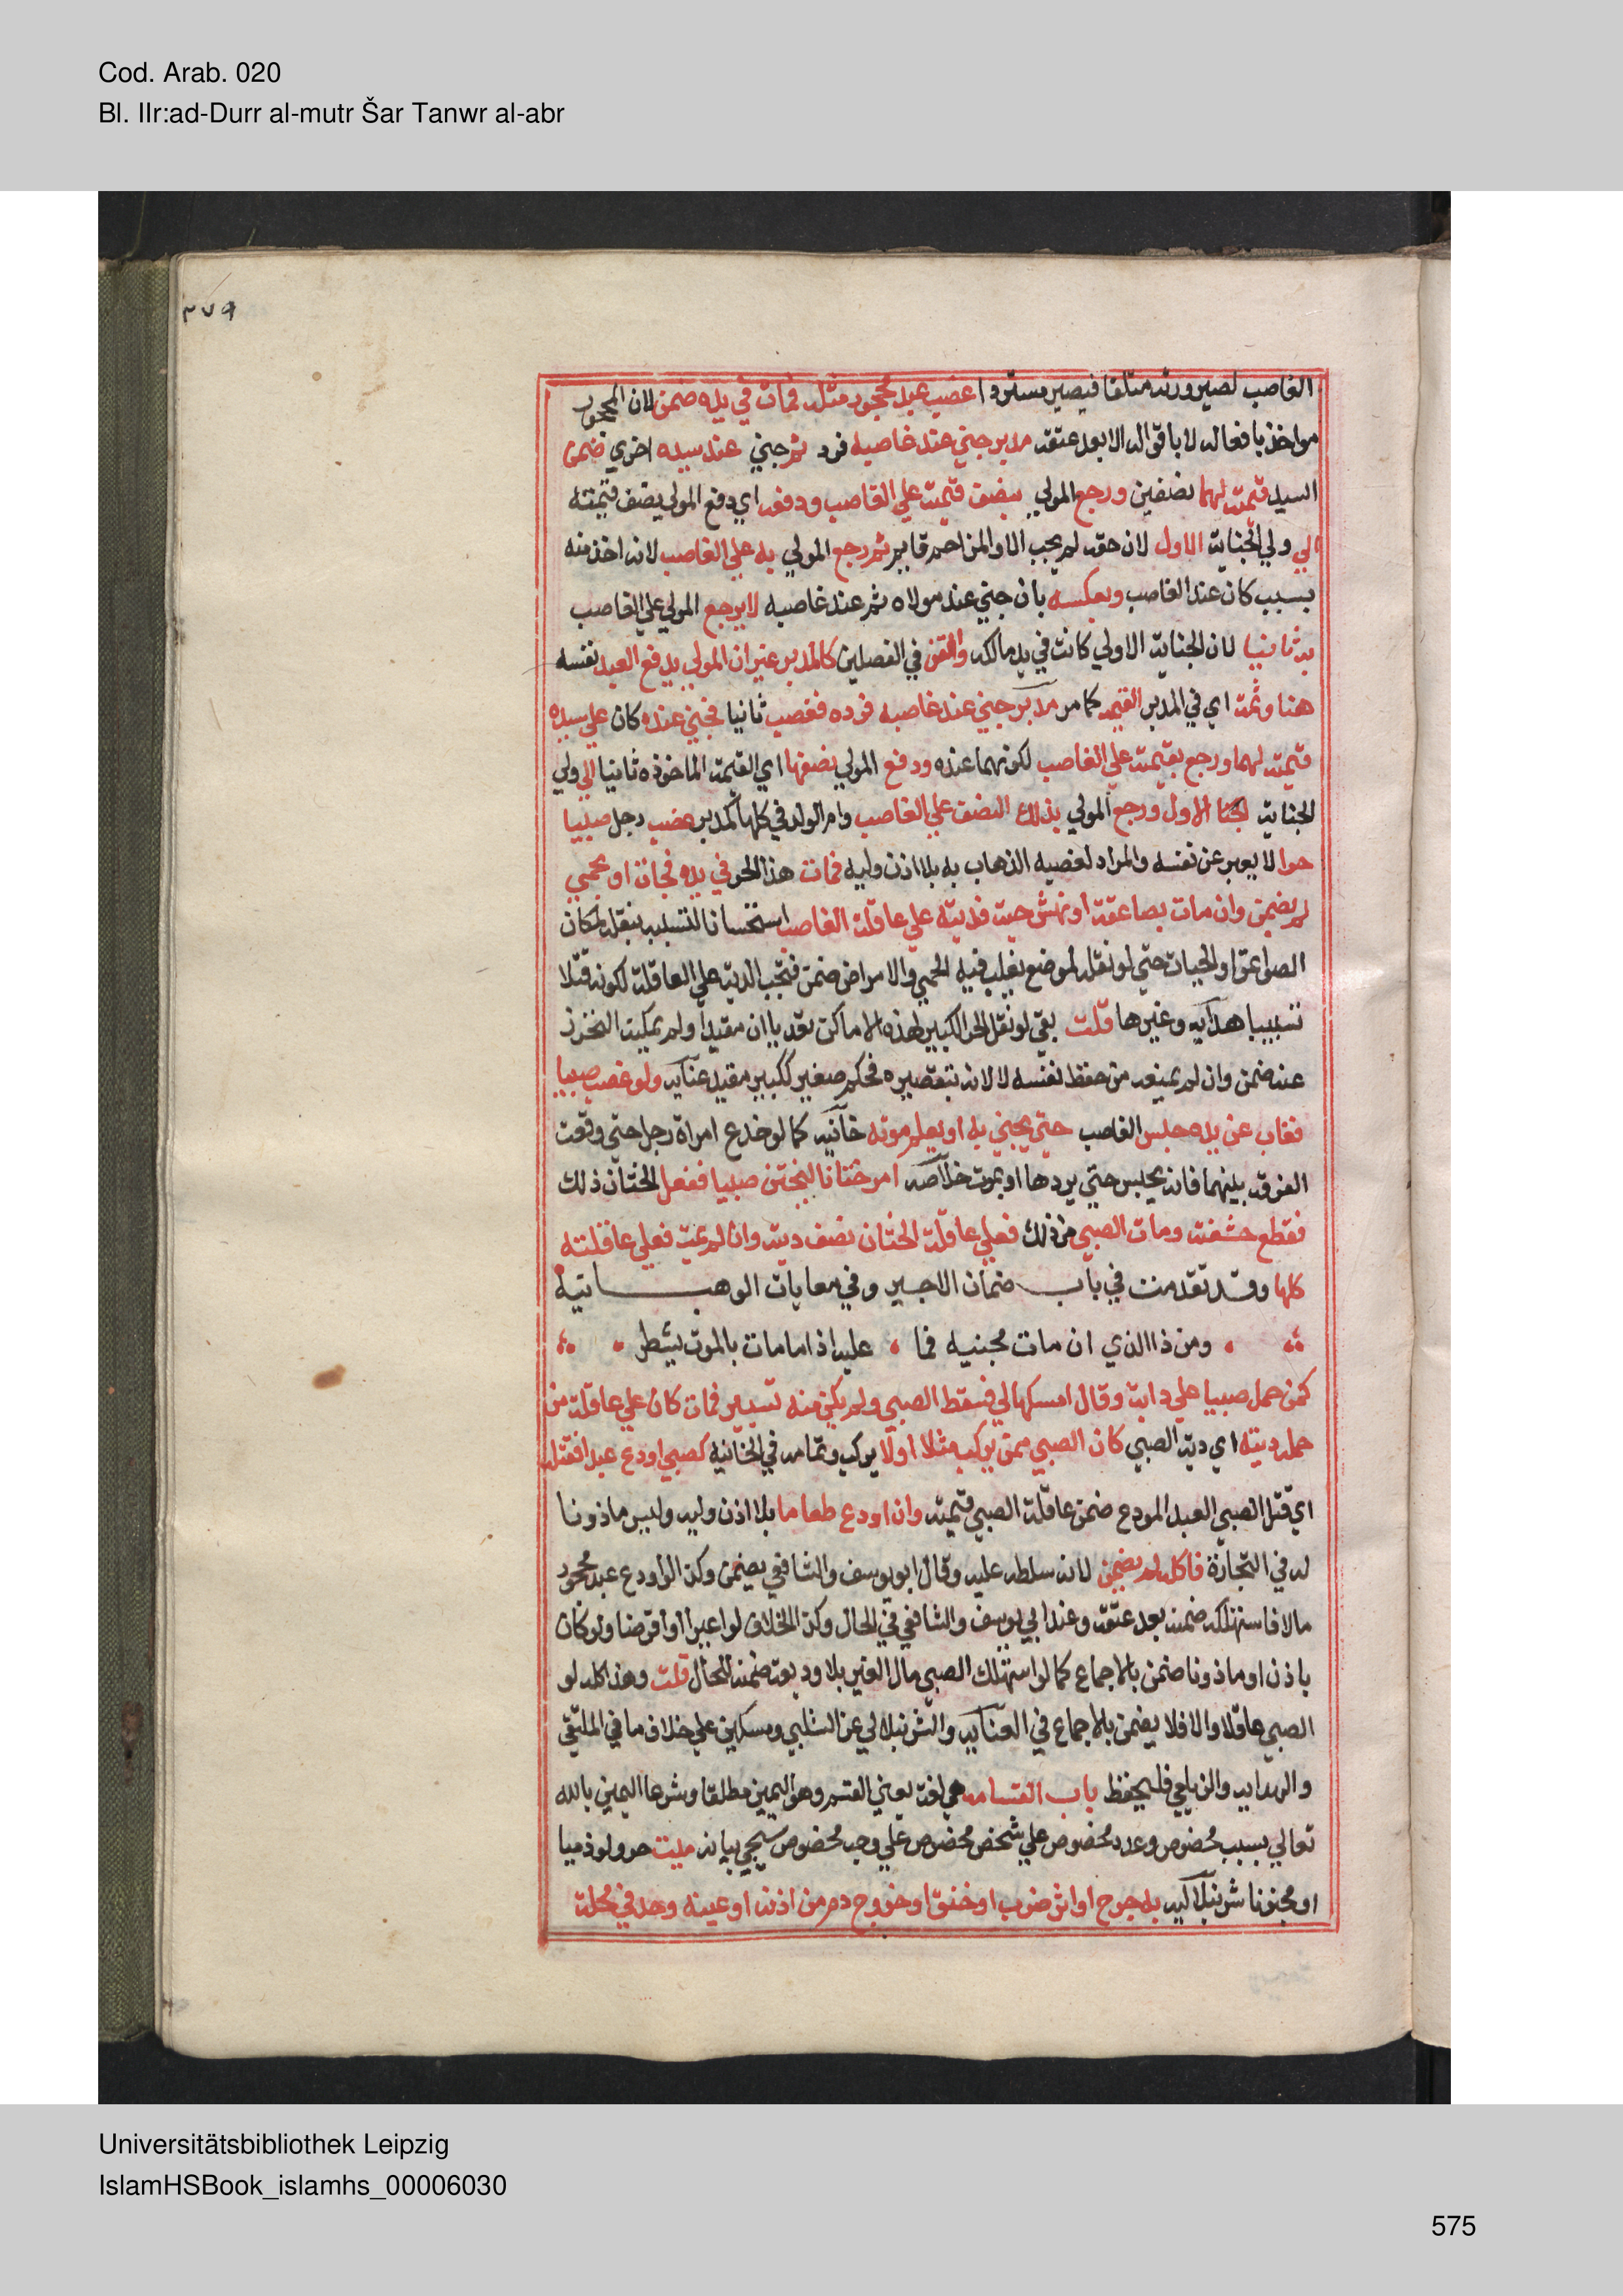 Cod. Arab. 020
Bl. IIr:ad-Durr al-mutr Šar Tanwr al-abr
٣٧٩
الغاصب لصيرورته متلفا فيصير مستردا غصب عبد محجور مثله فمات في يده ضمن لان المحجور
مواخذ بافعاله لا باقواله الا بعد عتقه مدبر جني عند غاصبه فرد ثم جني عند سيده اخري ضمن
السيد قيمته لهما نصفين ورجع المولي بنصف قيمته علي الغاصب ودفعه اي دفع المولي نصف قيمته
الي ولي الجناية الاول لان حقه لم يجب الا والمزاحم قايم ثم رجع المولي به علي الغاصب لانه اخذ منه
بسبب كان عند الغاصب وبعكسه بان جني عند مولاه ثم عند غاصبه لا يرجع المولي علي الغاصب
به ثانيا لان الجناية الاولي كانت في يد مالكه والقن في الفصلين كالمدبر غير ان المولي يدفع العبد نفسه
هنا وثمت اي في المدبر القيمه كما مر مدبر جني عند غاصبه فرده فغصب ثانيا فجني عنده كان علي سيده
قيمته لهما ورجع بقيمته علي الغاصب لكونهما عنده ودفع المولي نصفها اي القيمة الماخوذه ثانيا الي ولي
الجناية الاول ورجع المولي بذلك النصف علي الغاصب وام الولد في كلها كمدبر غصب رجل صبيا
حرا لا يعبر عن نفسه والمراد لغصبه الذهاب به بلا اذن وليه فمات هذا الحر في يده فجاة او بحمي
لم يضمن وان مات بصاعقة او نهش حية فديته علي عاقلة الغاصب استحسانا لتسببه بنقله لمكان
الصواعق او الحيات حتي لو نقله لموضع يغلب فيه الحمي والامراض ضمن فتجب الدية علي العاقلة لكونه قتلا
تسبيبا هدايه وغيرها قلت بقي لو نقل الحر الكبير لهذه الاماكن تعديا ان مقيدا ولم يمكنه التحرز
عنه ضمن وان لم يمنعه من حفظ نفسه لا لانه بتقصيره فحكم صغير ككبير مقيد عنايه ولو غصب صبيا
فغاب عن يده حبس الغاصب حتي يجني به او يعلم موته خانيه كما لو خدع امراة رجل حتي وقعت
الفرقة بينهما فانه يحبس حتي يردها او يموت خلاصه امر ختانا ليختن صبيا ففعل الختان ذلك
فقطع حشفته ومات الصبي من ذلك فعلي عاقلة الختان نصف ديته وان لم يمت فعلي عاقلته
كلها وقد تقدمت في باب ضمان الاجير وفي معايات الوهبانيه
ومن ذا الذي ان مات مجنيه فما عليه اذا ما مات بالموت يشطر
كمن حمل صبيا علي دابة وقال امسكها لي فسقط الصبي ولم يكن منه تسيير فمات كان علي عاقلة من
حمله ديته اي دية الصبي كان الصبي ممن يركب مثله او لا يركب وتمامه في الخانيه كصبي اودع عبدا فقتله
اي قتل الصبي العبد المودع ضمن عاقلة الصبي قيمته وان اودع طعاما بلا اذن وليه وليس ماذونا
له في التجارة فاكله لم يضمن لانه سلطه عليه وقال ابو يوسف والشافعي يضمن وكذا لو اودع عبد محجور
مالا فاستهلكه ضمنه بعد عتقه وعند ابي يوسف والشافعي في الحال وكذا الخلاف لو اعيرا او اقرضا ولو كان
باذن او ماذونا ضمن بالاجماع كما لو استهلك الصبي مال الغير بلا وديعة ضمنه للحال قلت وهذا كله لو
الصبي عاقلا والا فلا يضمن بالاجماع في العنايه والشرنبلالي عن الشلبي ومسكين علي خلاف ما في الملتقي
والهدايه والزيلعي فليحفظ باب القسامه هي لغة بعني القسم وهو اليمين مطلقا وشرعا اليمين بالله
تعالي بسبب مخصوص وعدد مخصوص علي شخص مخصوص علي وجه مخصوص سيجي بيانه ميت حر ولو ذميا
او مجنونا شرنبلاليه به جرح او اثر ضرب او خنق او خروج دم من اذنه او عينه وجد في محلة
Universitätsbibliothek Leipzig
IslamHSBook_islamhs_00006030
575